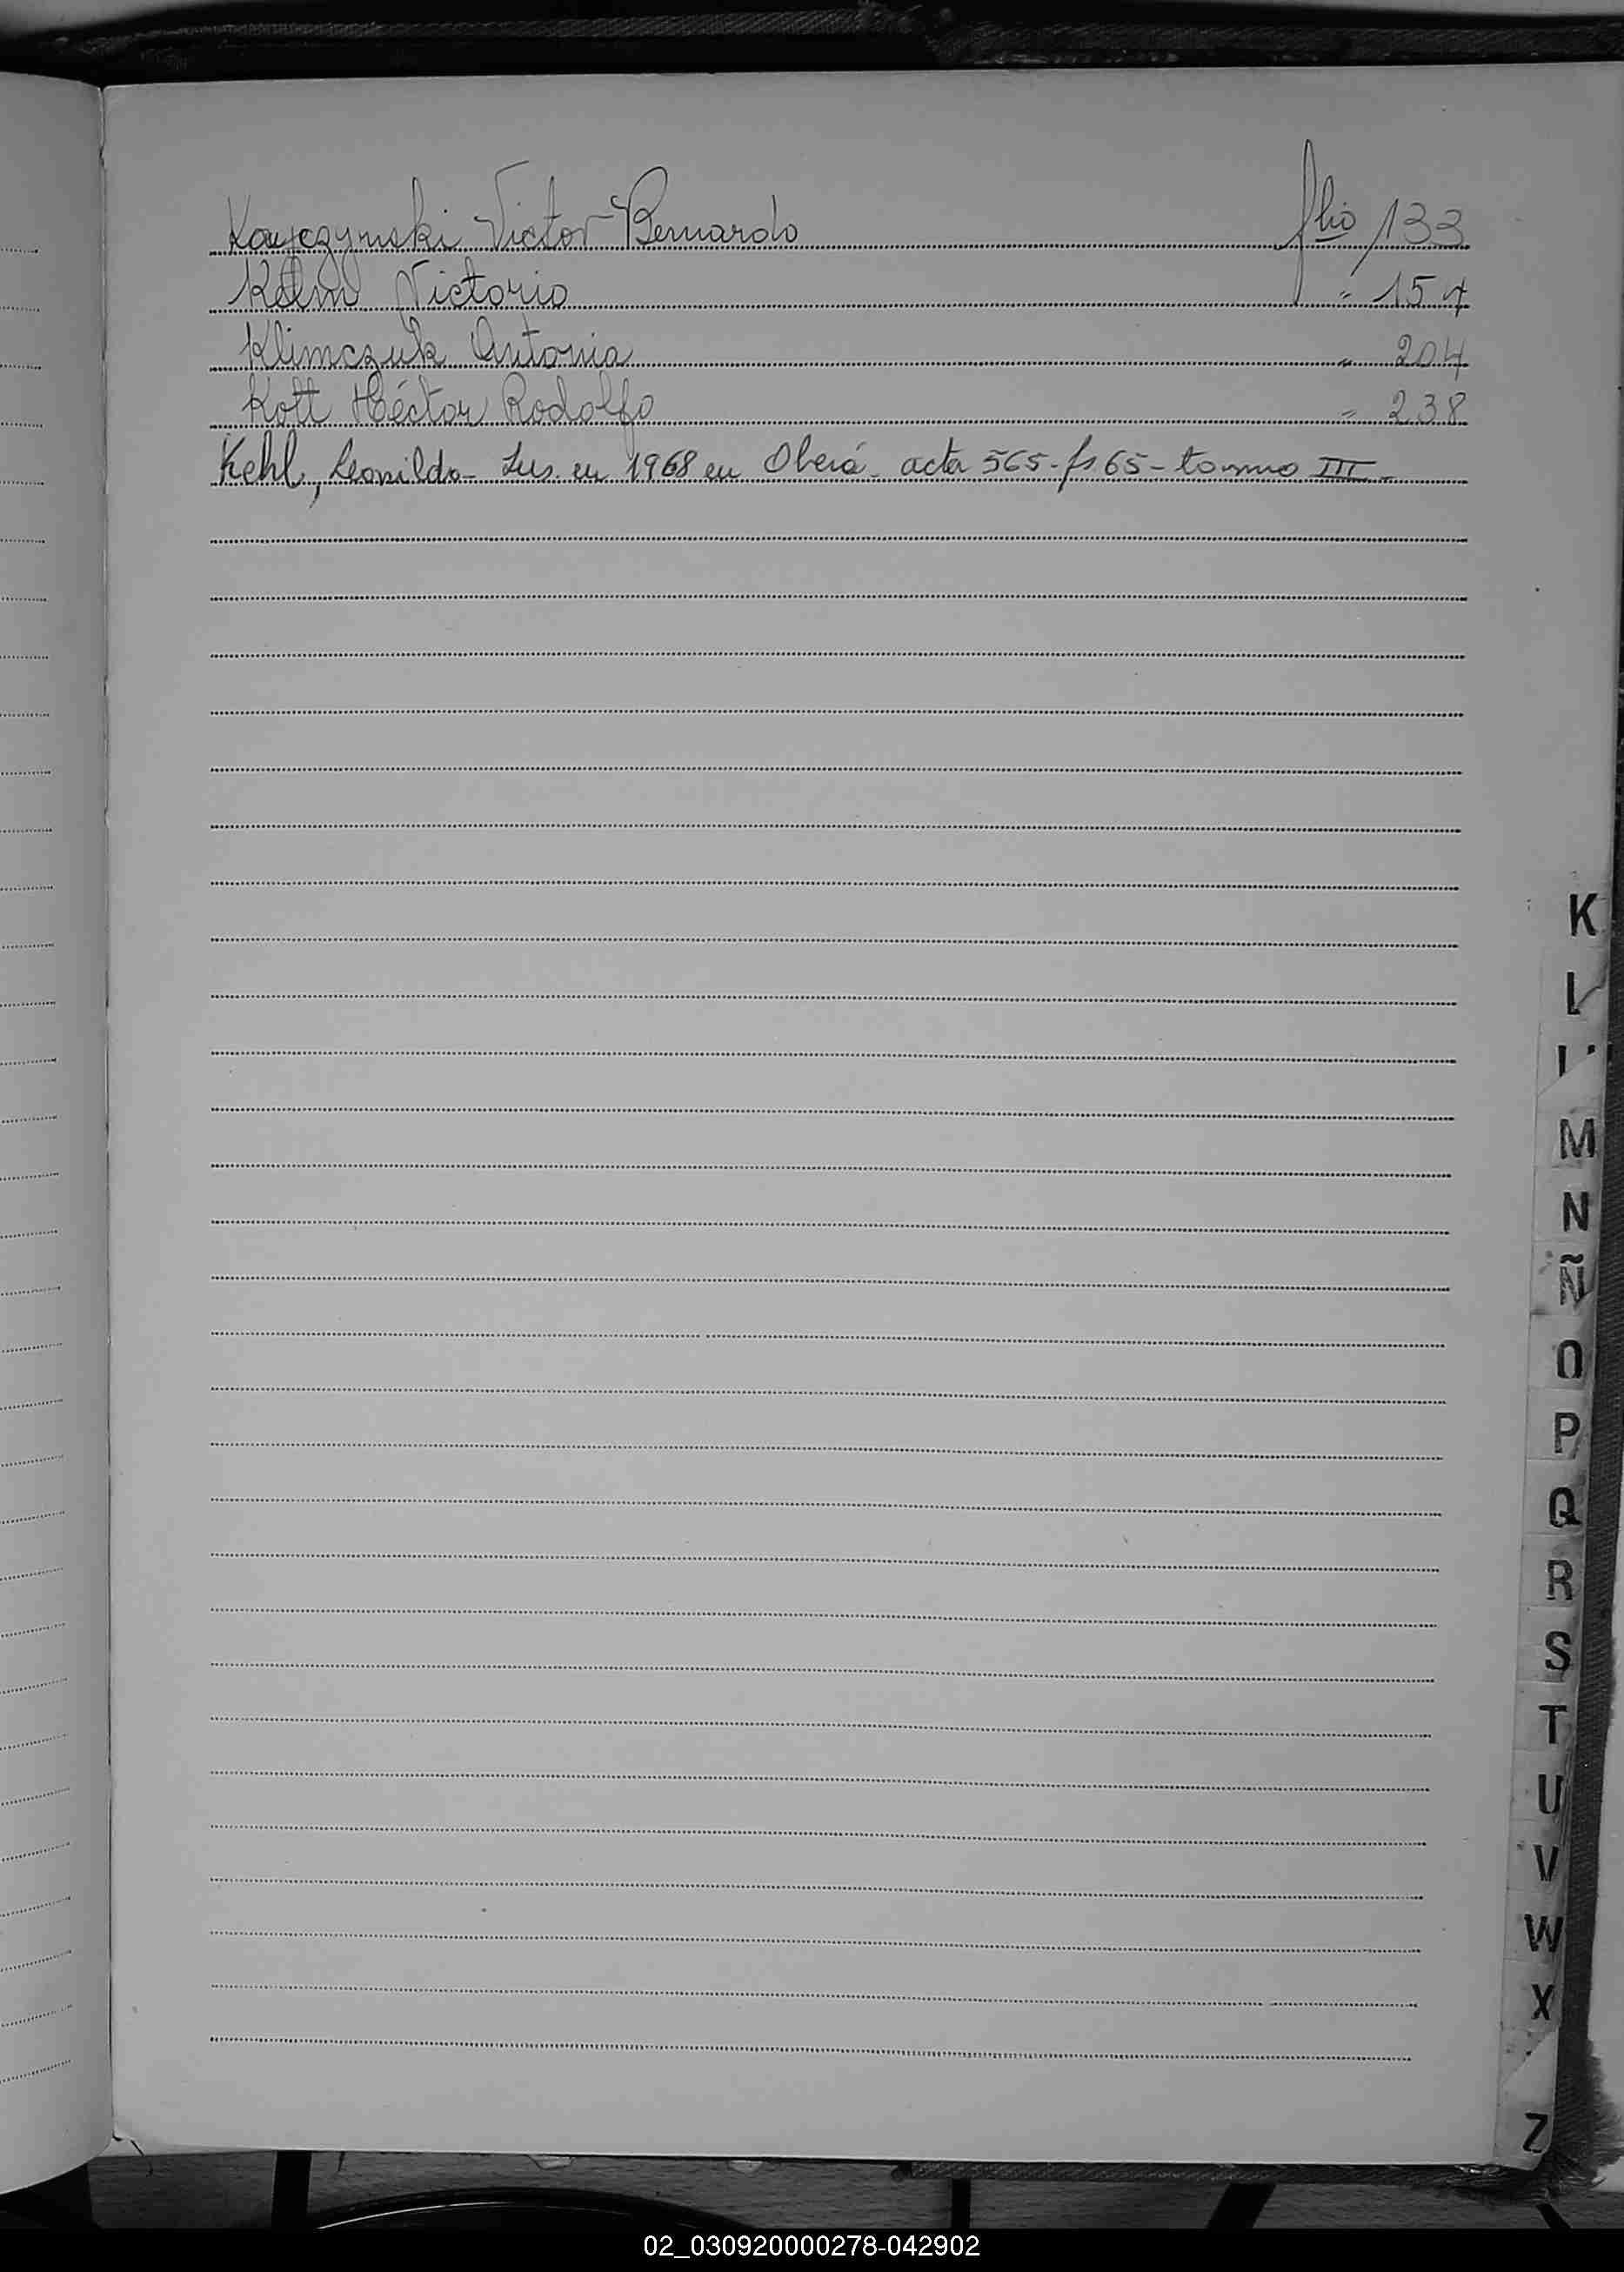 Kayczynski Victor Bernardo flio 133
Kelm Victorio " 157
Klimczuk Antonia " 204
Kott Héctor Rodolfo " 238
Kehl, Leonildo - Ins. en 1968 en Oberá - acta 565 - fs 65 - tommo III -
K
L
M
N
Ñ
O
P
Q
R
S
T
U
V
W
X
Z
02_030920000278-042902